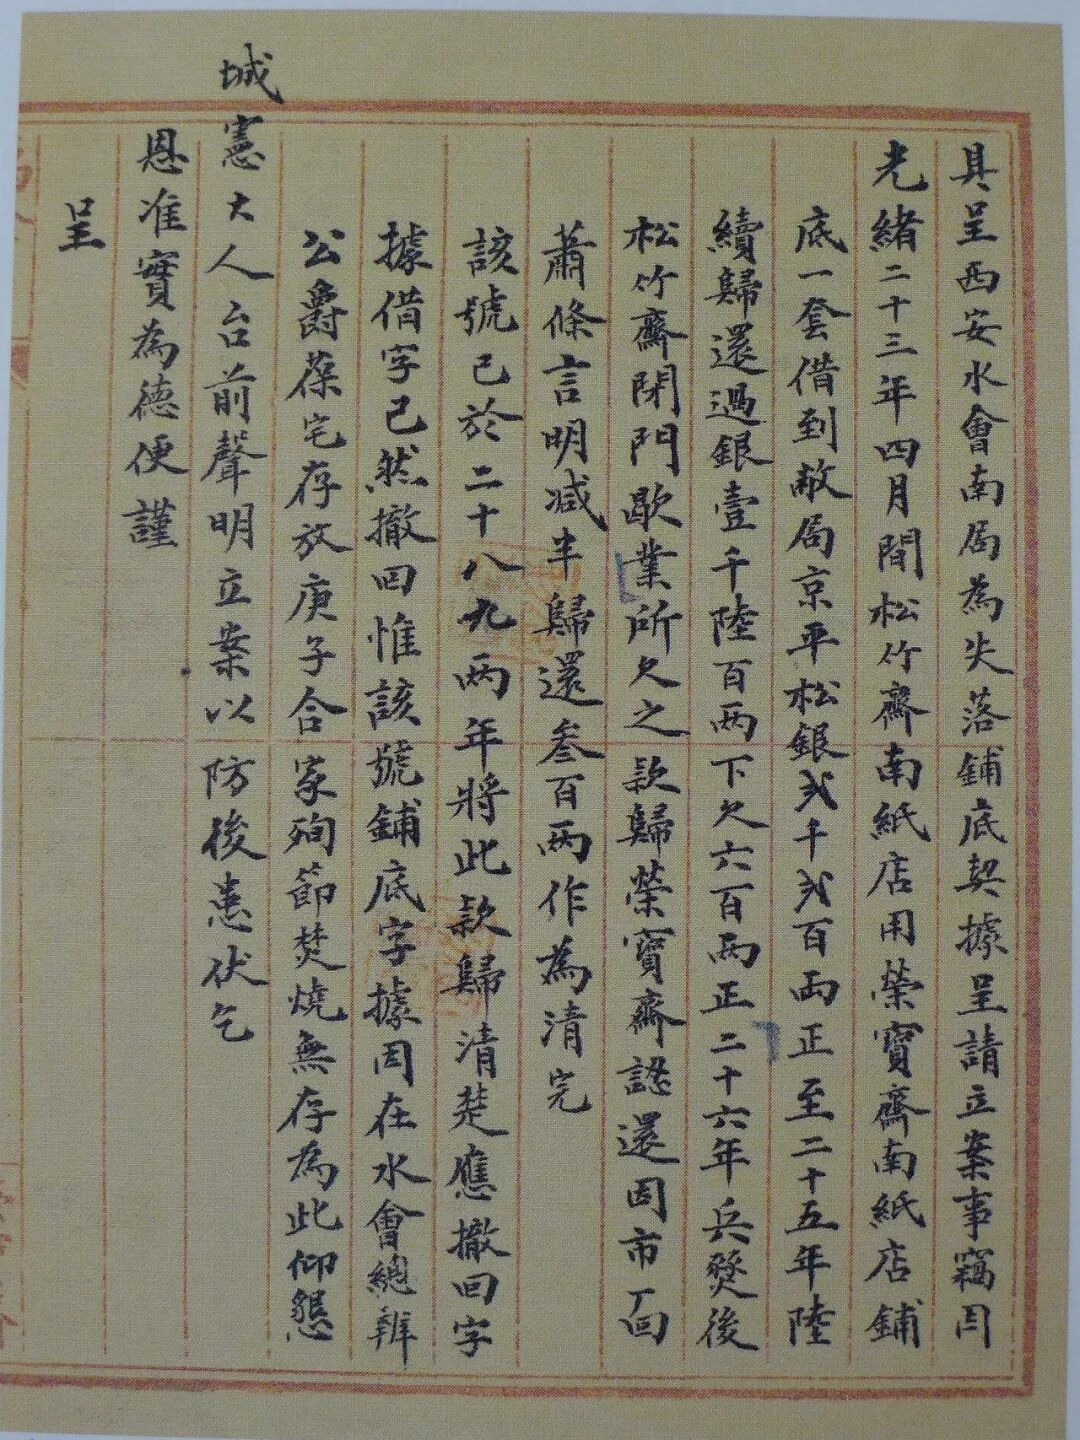 具呈西安水會南局為失落鋪底契據呈請立案事竊因
光緒二十三年四月間松竹齋南紙店用榮寶齋南紙店鋪
底一套借到敝局京平松銀弍千弍百両正至二十五年陸
續歸還過銀壹千陸百両下欠六百両正二十六年兵燹後
松竹齋閉門歇業所欠之款歸榮寶齋認還因市面
蕭條言明減半歸還叁百両作為清完
該號已於二十八九两年將此款歸清楚應撤回字
據借字已然撤回惟該號鋪底字據因在水會總辦
公爵葆宅存放庚子合家殉節焚燒無存為此仰懇
城憲大人台前聲明立案以防後患伏乞
恩准實為德便謹
呈